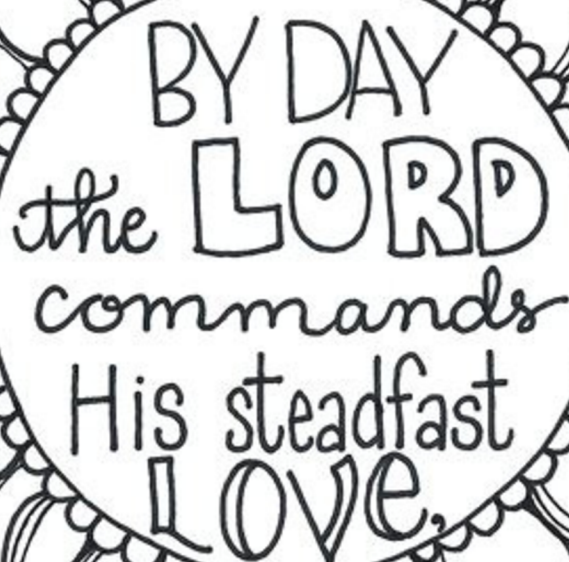 BY DAY
the LORD
commands
His steadfast
Love,